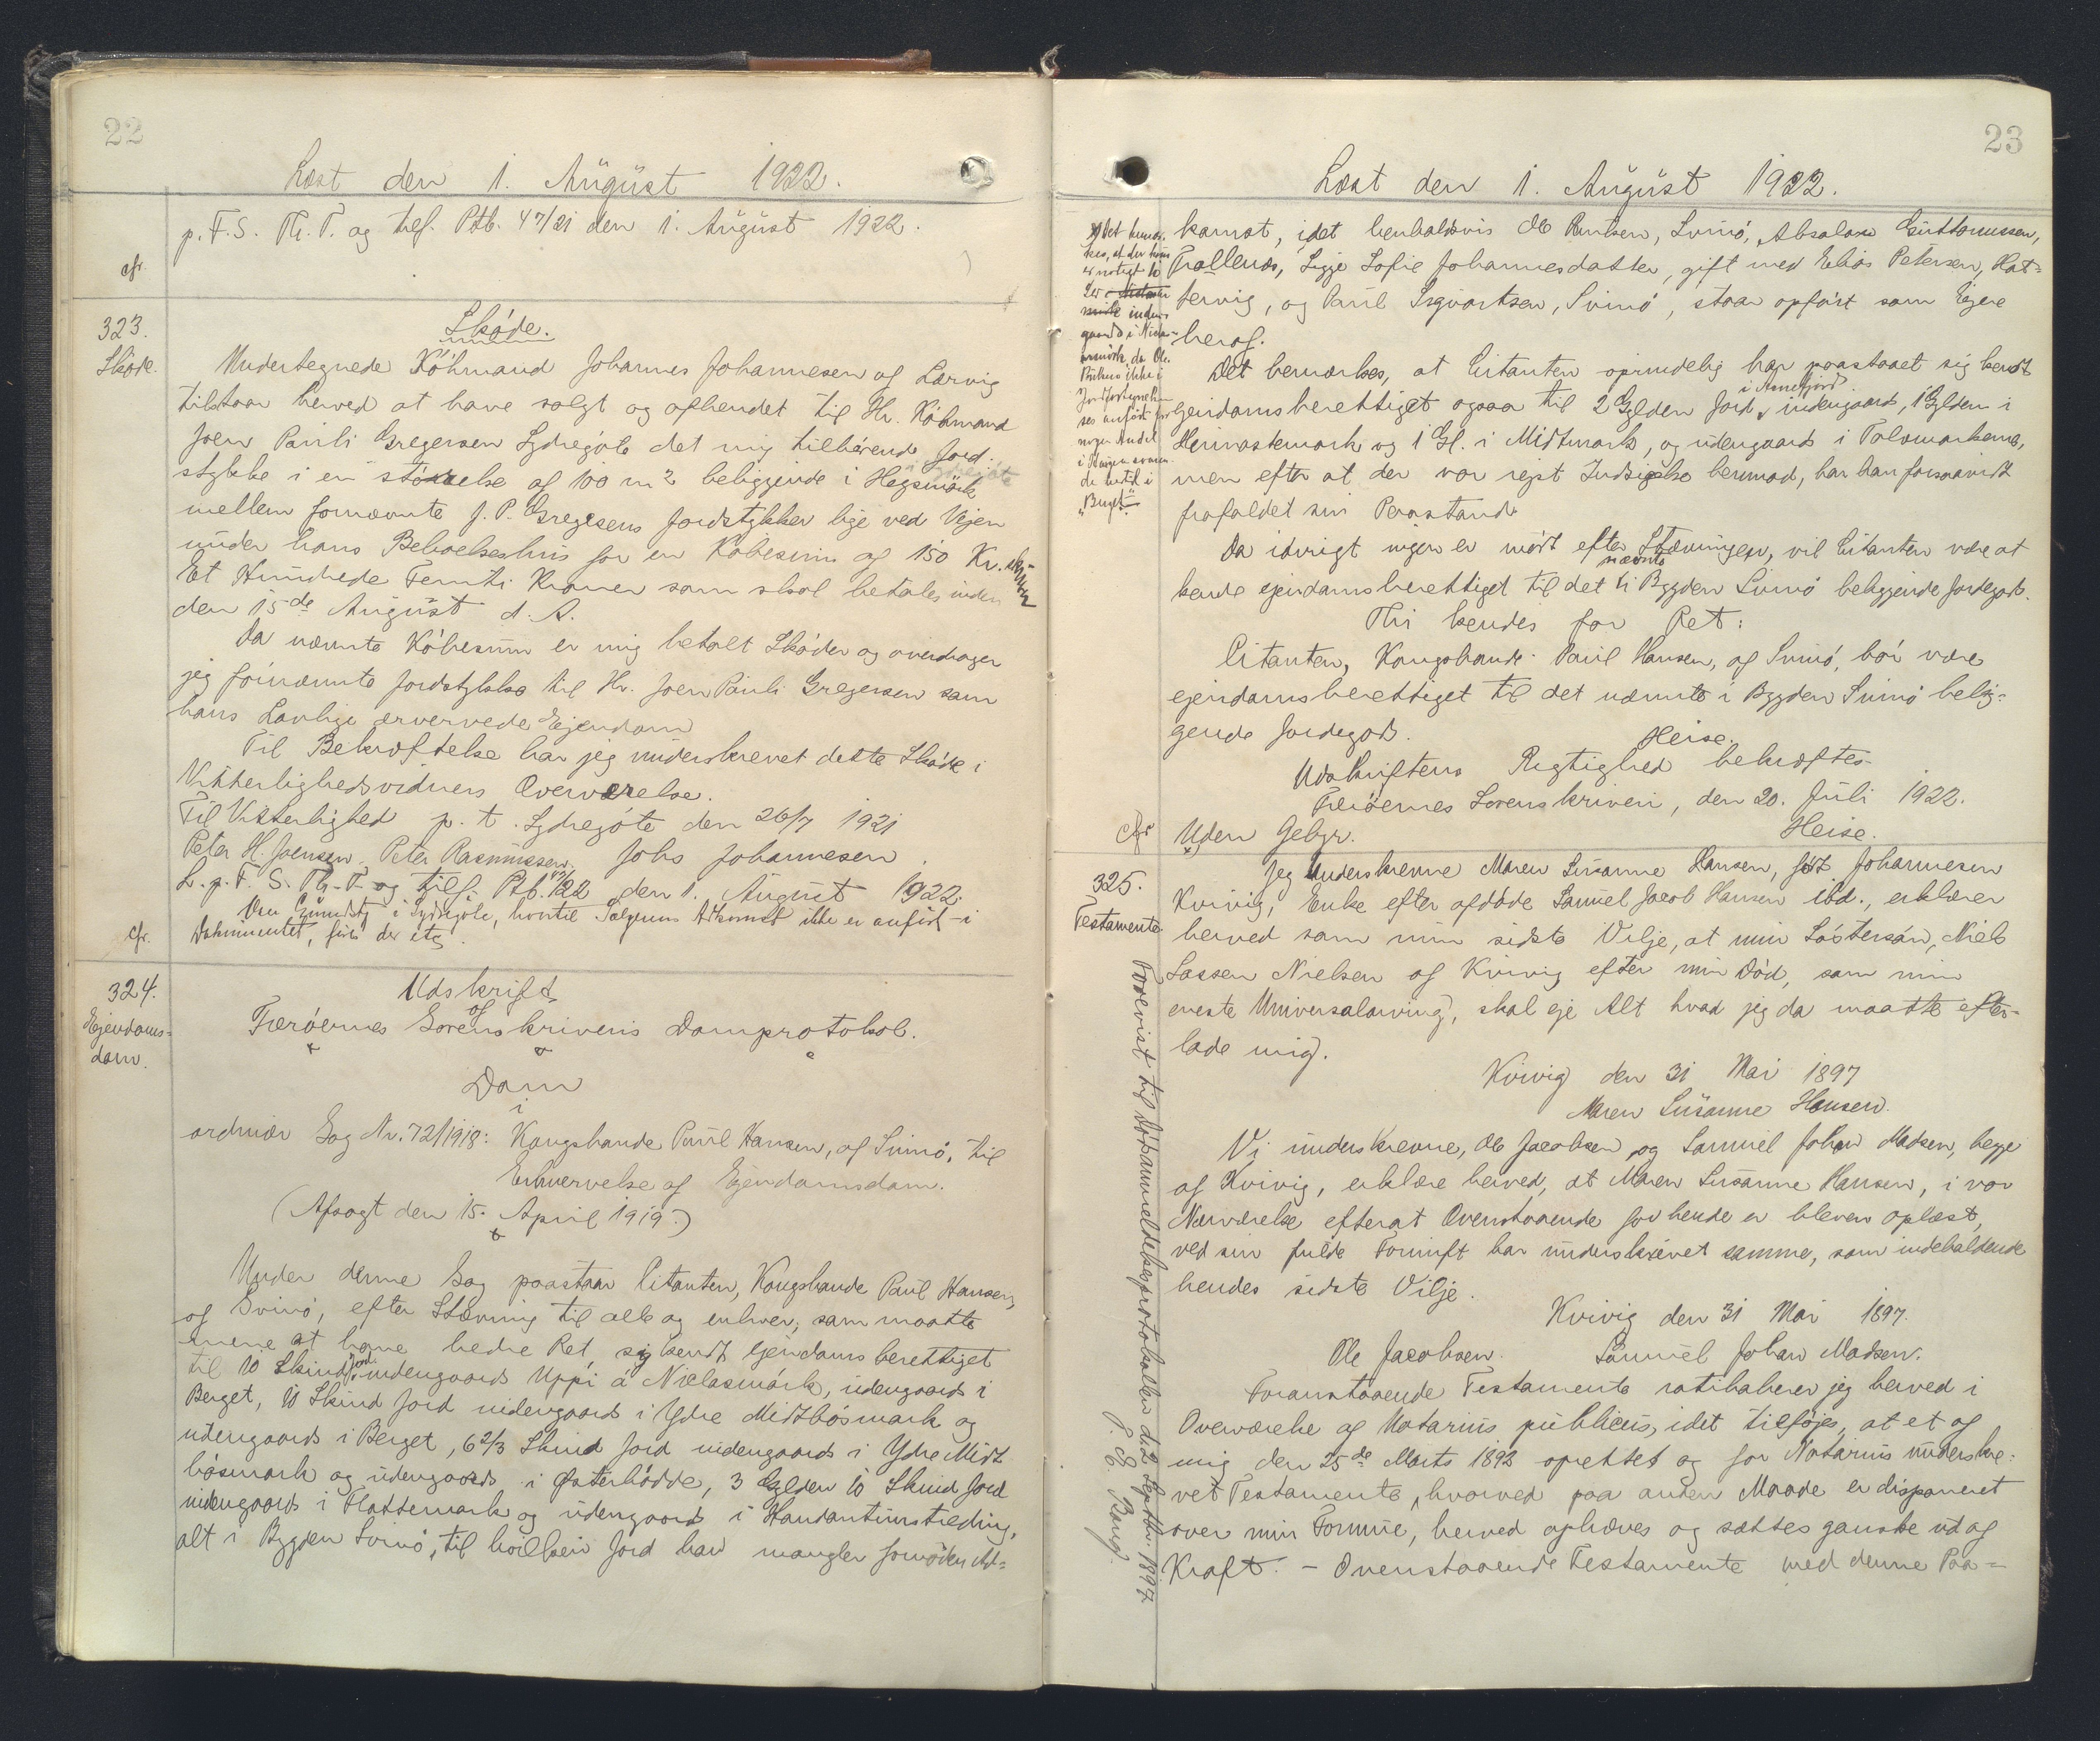 22
Læst den 1. August 1922.
p. F. S. Th. P. og tilf. Ptb. 47/21 den 1. August 1922.
cfr.
323.
Skøde.
Skøde.
Undertegnede Köbmand Johannes Johannesen af Lervig
tilstaar herved at have solgt og afhendet til Hr. Köbmand
Joen Pauli Gregersen Sydregöte det mig tilhörende Jord-
stykke i en störrelse af 100 m2 beliggende i Høgsmörk
mellem fornævnte J. P. Gregersens Jordstykker lige ved Vejen
under hans Beboelseshus for en Köbesum af 150 Kr. skriver
Et Hundrede Femti Kroner som skal betales inden
den 15de August d. A.
Da nævnte Köbesum er mig betalt Sköder og overdrager
jeg fornævnte Jordstykke til Hr. Joen Pauli Gregersen som
hans Lovlige erververvede Ejendom
Til Bekræftelse har jeg underskrevet dette Sköde i
Vitterlighedsvidners Overværelse.
Til Vitterlighed p. t. Sydregöte den 26/7 1921
Peter H. Joensen Peter Rasmussen Johs Johannesen.
L. p. F. S. Th. P. og tilf. Ptb. 122 den 1. August 1922.
Grundstk i Sydregöte, hvortil Sælgerens Adkomst ikke er anfört i
cfr.
Dokumentet, findes der ikke.
324.
Ejendoms-
dom.
Udskrift
af
Færöernes Sorenskriveris Domprotokol.
Dom
i
ordinær Sag Nr. 72/1918: Kongsbonde Paul Hansen, af Svinö, til
Erhvervelse af Ejendomsdom.
(Afsagt den 15. April 1919.)
Under denne Sag paastaar Citanten, Kongsbonde Paul Hansen,
af Svinö, efter Stævning til alle og enhver, som maatte
mene at have bedre Ret sig kendt ejendomsberettiget
til 10 Skind Jord indengaards Uppi á Niclasmörk, udengaards i
Berget, 10 Skind Jord indengaards i Ydre Midtbösmark og
udengaards i Berget, 6 2/3 Skind Jord indengaards i Ydre Midt-
bösmark og udengaards i Østerhödde, 3 Gylden 10 Skind Jord
indengaards i Flattemark og udengaards i Handantimstreding,
alt i Bygden Svinö, til hvilken Jord han mangler fornöden Ad-
23
Læst den 1. August 1922.
Det bemær-
kes, at der kun
er noteret 10
indens
gaards i Niclas-
mörk, da Ole
ikke i
Jordfortegnel-
ses anfört for
nogen Andel
i Haugen svaren-
de hertil i
"Berget"
komst, idet henholdsvis Ole Poulsen, Svinö, Absalon Guttormsen,
Trøllenæs, Sigge Sofie Johannesdatter, gift med Elias Petersen, Hat-
tervig, og Paul Sigvartsen, Svinö, staar opfört som Ejere
heraf.
Det bemærkes, at Citanten oprindelig har paastaaet sig kendt
ejendomsberettiget ogsaa til 2 Gylden Jord i Arnefjord indengaards, 1 Gylden i
Heimastemark og 1 Gl. i Midtmark, og udengaards i Tolvmarkerne,
men efter at der var rejst Indsigelse herimod, har han forsaavidt
frafaldet sin Paastand.
Da iövrigt ingen er mödt efter Stævningen, vil Citanten være at
kende ejendomsberettiget til det nævnte i Bygden Svinö beliggende Jordegods.
Thi kendes for Ret:
Citanten, Kongsbonde Paul Hansen, af Svinö, bör være
ejendomsberettiget til det nævnte i Bygden Svinö belig-
gende Jordegods.
Heise.
Udskriftens Rigtighed bekræftes
Færöernes Sorenskriveri, den 20. Juli 1922.
Heise.
cfr
Uden Gebyr.
325.
Testamente
Jeg Underskrevne Maren Susanne Hansen, födt Johannesen
Kvivig, Enke efter afdöde Samuel Jacob Hansen ibd., erklærer
herved som min sidste Vilje, at min Söstersön, Niels
Sassen Nielsen af Kvivig efter min Död, som min
eneste Universalarving, skal eje Alt hvad jeg da maatte efter-
lade mig.
Kvivig den 31 Mai 1897
Maren Susanne Hansen.
Vi underskrevne, Ole Jacobsen og Samuel Johan Madsen, begge
af Kvivig, erklære herved, at Maren Susanne Hansen, i vor
Nærværelse efterat Ovenstaaende for hende er bleven oplæst,
ved sin fulde Fornuft har underskrevet samme, som indeholdende
hendes sidste Vilje.
Kvivig den 31 Mai 1897.
Ole Jacobsen. Samuel Johan Madsen.
Foranstaaende Testamente ratihaberer jeg herved i
Overværelse af Notarius publicus, idet tilföjes, at et af
mig den 25de Marts 1892 oprettet og for Notarius underskre-
vet Testamente, hvorved paa anden Maade er disponeret
over min Formue, herved ophæves og sættes ganske ud af
Kraft. - Ovenstaaende Testamente med denne Paa-
Forevist til Döbsanmeldelsesprotokollen d. 2 Septbr. 1897
J. E. Bang.